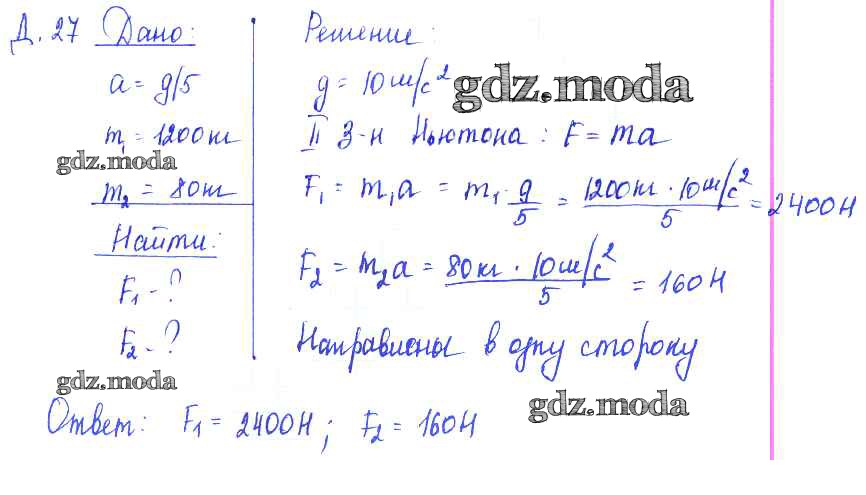 Д. 27 Дано:
a = g/5
m₁ = 1200 кг
gdz.moda
m₂ = 80 кг
Найти:
F₁ - ?
F₂ - ?
gdz.moda
Решение:
g = 10 м/с² gdz.moda
II З-н Ньютона: F = ma
F₁ = m₁a = m₁ · g/5 = 1200 кг · 10 м/с² / 5 = 2400 Н
F₂ = m₂a = 80 кг · 10 м/с² / 5 = 160 Н
Направлены в одну сторону
gdz.moda
Ответ: F₁ = 2400 Н; F₂ = 160 Н